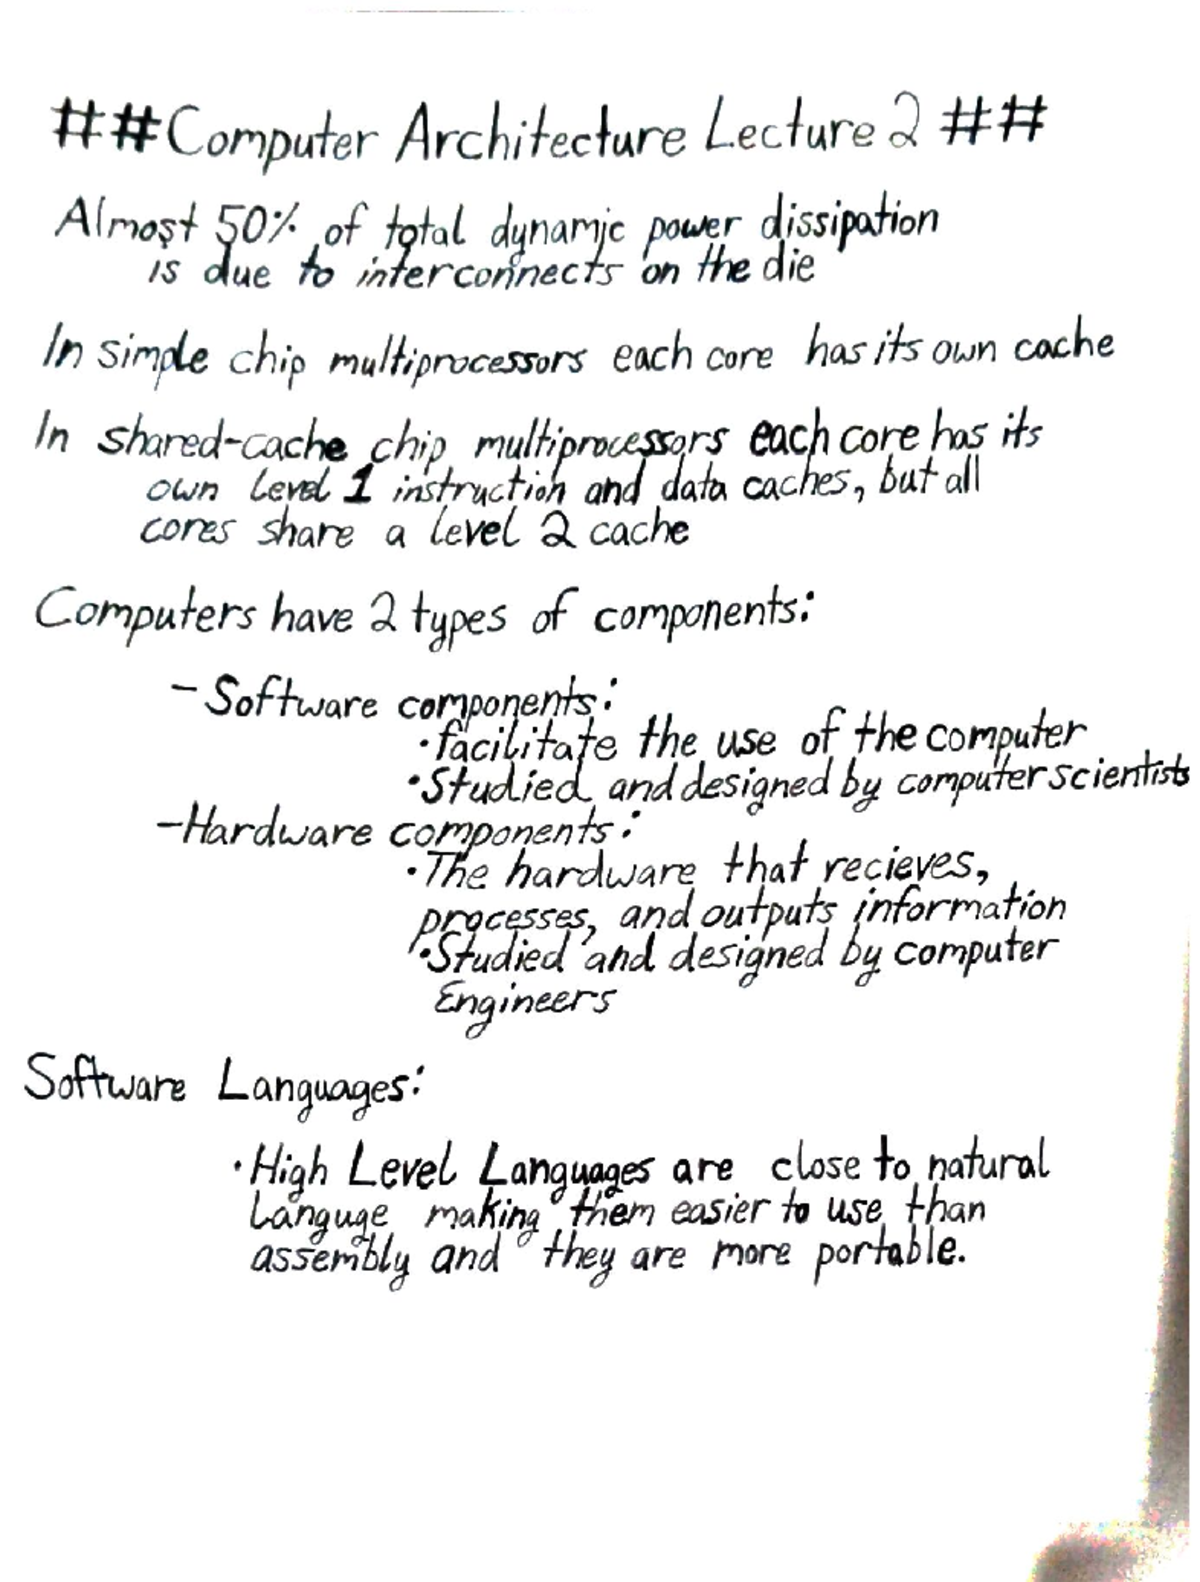 ##Computer Architecture Lecture 2 ##
Almost 50% of total dynamic power dissipation
is due to interconnects on the die
In simple chip multiprocessors each core has its own cache
In shared-cache chip multiprocessors each core has its
own level 1 instruction and data caches, but all
cores share a level 2 cache
Computers have 2 types of components:
- Software components:
• facilitate the use of the computer
• Studied and designed by computer scientists
- Hardware components:
• The hardware that recieves,
processes, and outputs information
• Studied and designed by computer
Engineers
Software Languages:
• High Level Languages are close to natural
Languge making them easier to use than
assembly and they are more portable.